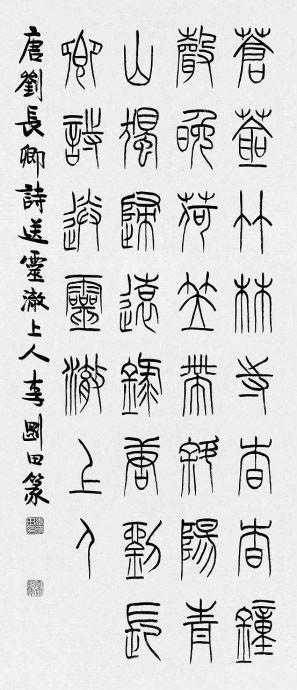 蒼蒼竹林寺杳杳鐘
聲晚荷笠帶斜陽青
山獨歸遠錄唐劉長
卿詩送靈澈上人
唐劉長卿詩送靈澈上人李剛田篆